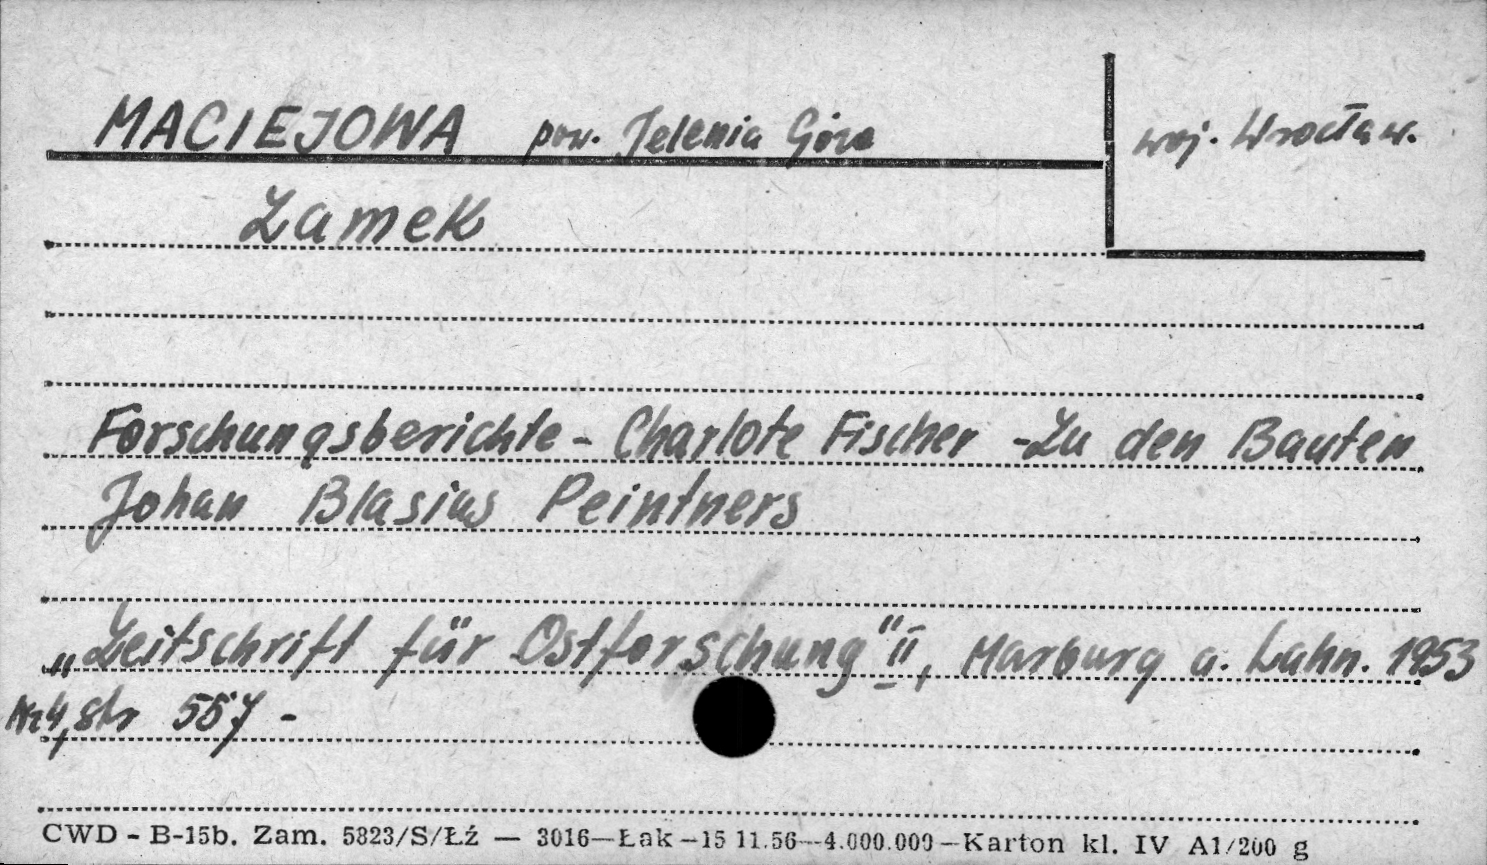 MACIEJOWA pow. Jelenia Góra
woj. Wrocław.
Zamek
Forschungsberichte - Charlote Fischer - Zu den Bauten
Johan Blasius Peintners
„Zeitschrift für Ostforschung" II, Marburg a. Lahn. 1953
Nr 4, str 557 -
CWD - B-15b. Zam. 5823/S/Łź — 3016—Łak —15 11.56—4.000.000—Karton kl. IV A1/200 g